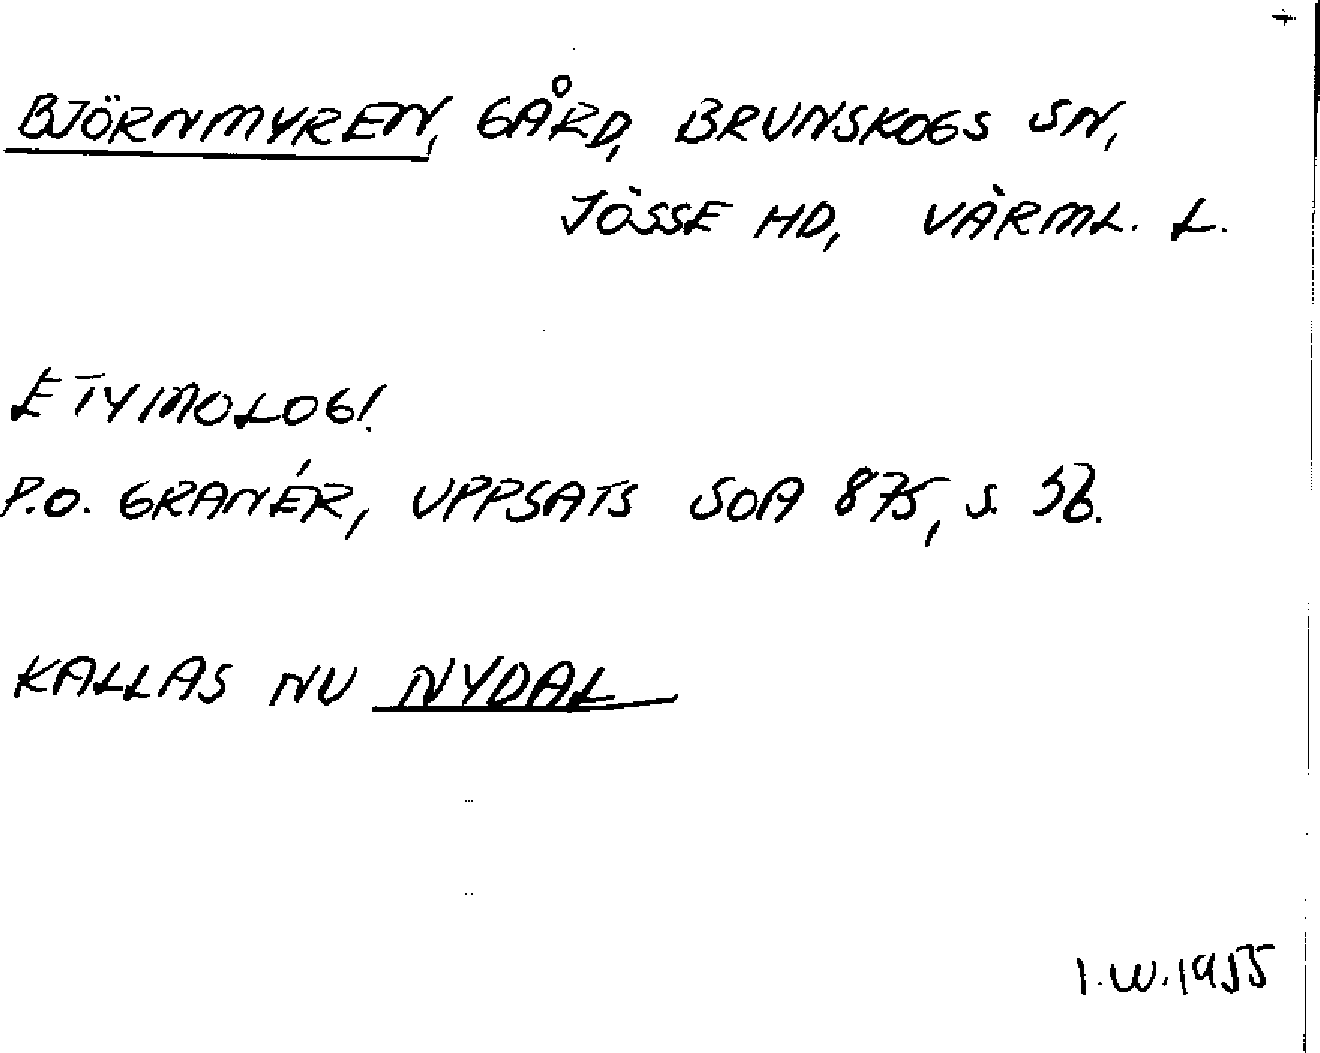 BJÖRNMYREN, GÅRD, BRUNSKOGS SN,
JÖSSE HD, VÄRML. L.
ETYMOLOGI.
P.O. GRANÉR, UPPSATS SOA 875, S.
KALLAS NU NYDAL
I.W. 1955